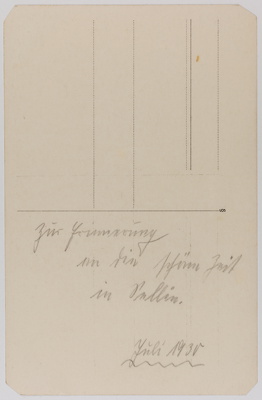 Zur Erinnerung
an die schöne Zeit
in Sellin.
Juli 1930